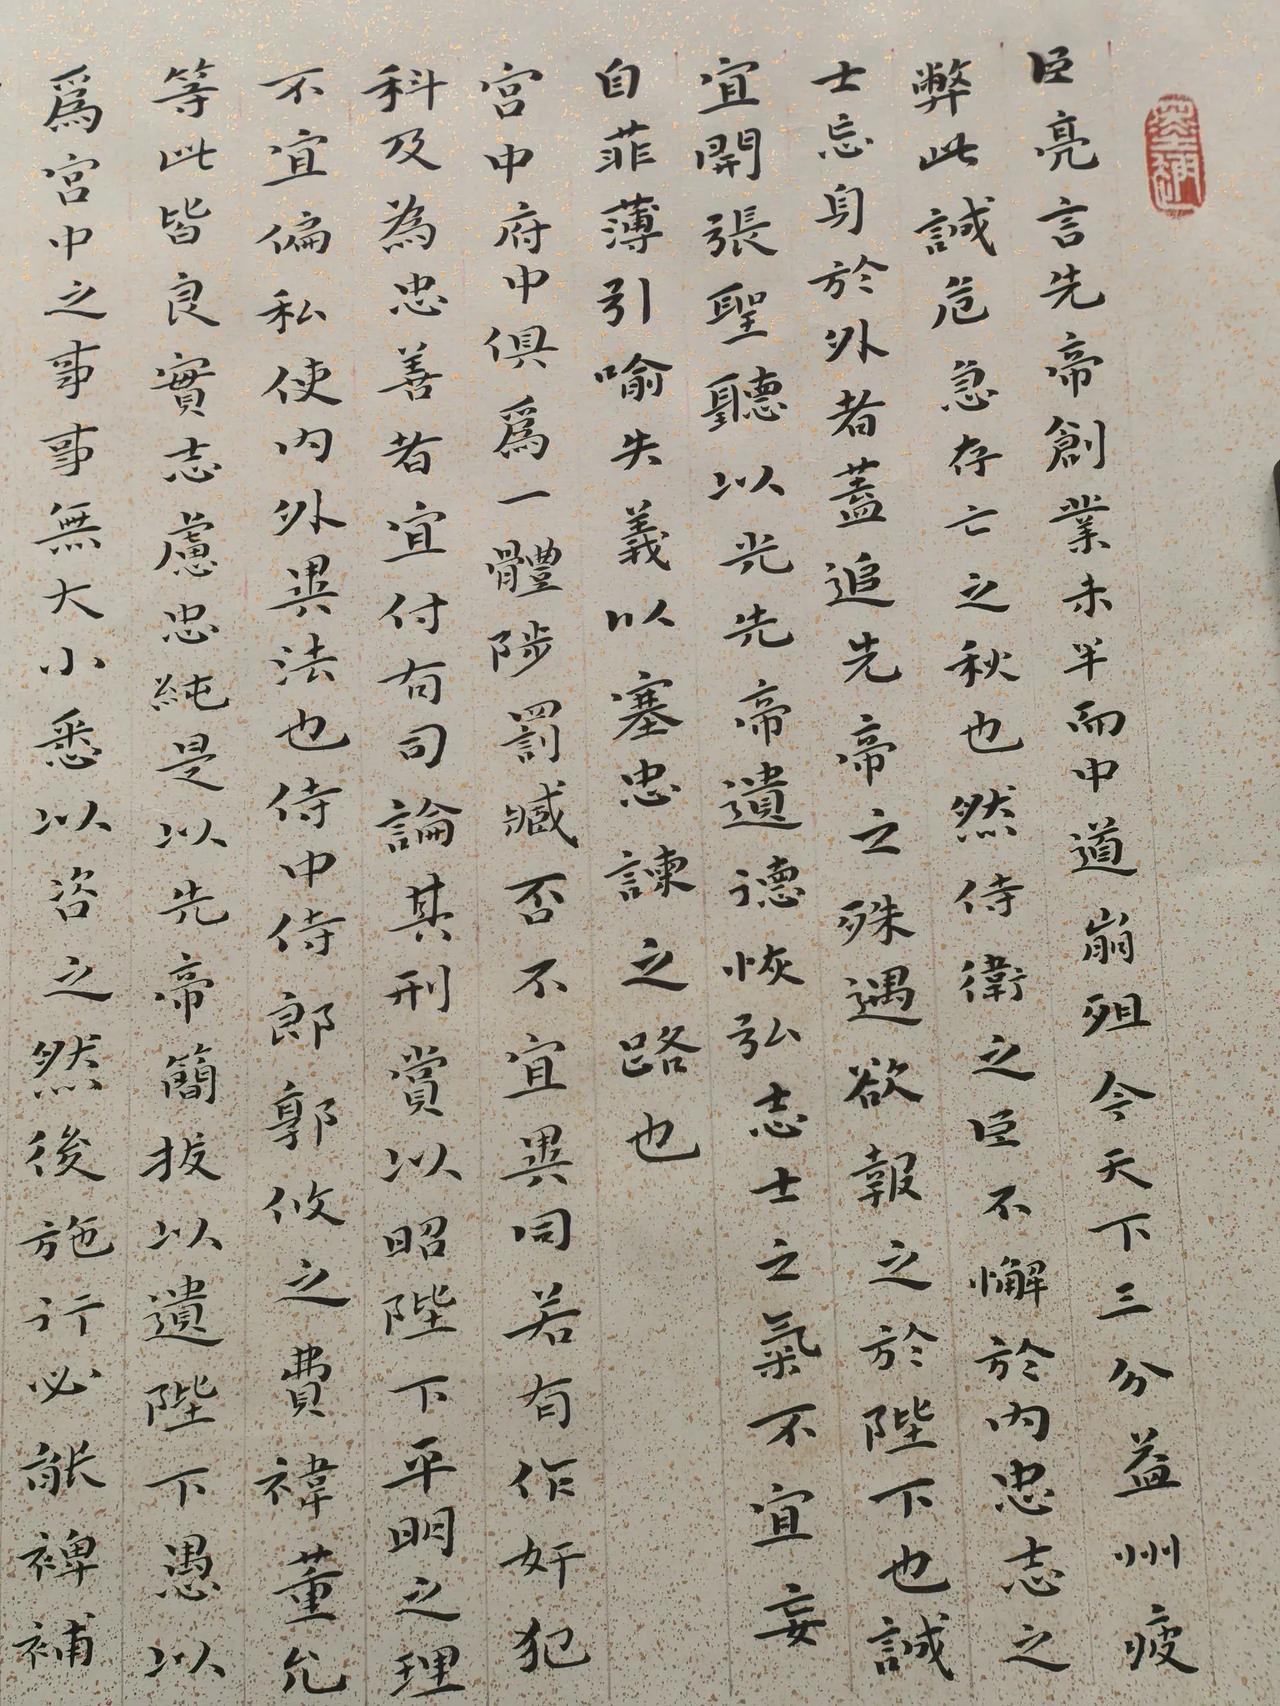 臣亮言先帝創業未半而中道崩殂今天下三分益州疲
弊此誠危急存亡之秋也然侍衛之臣不懈於內忠志之
士忘身於外者蓋追先帝之殊遇欲報之於陛下也誠
宜開張聖聽以光先帝遺德恢弘志士之氣不宜妄
自菲薄引喻失義以塞忠諫之路也
宮中府中俱爲一體陟罰臧否不宜異同若有作奸犯
科及為忠善者宜付有司論其刑賞以昭陛下平明之理
不宜偏私使內外異法也侍中侍郎郭攸之費禕董允
等此皆良實志慮忠純是以先帝簡拔以遺陛下愚以
爲宮中之事事無大小悉以咨之然後施行必能裨補